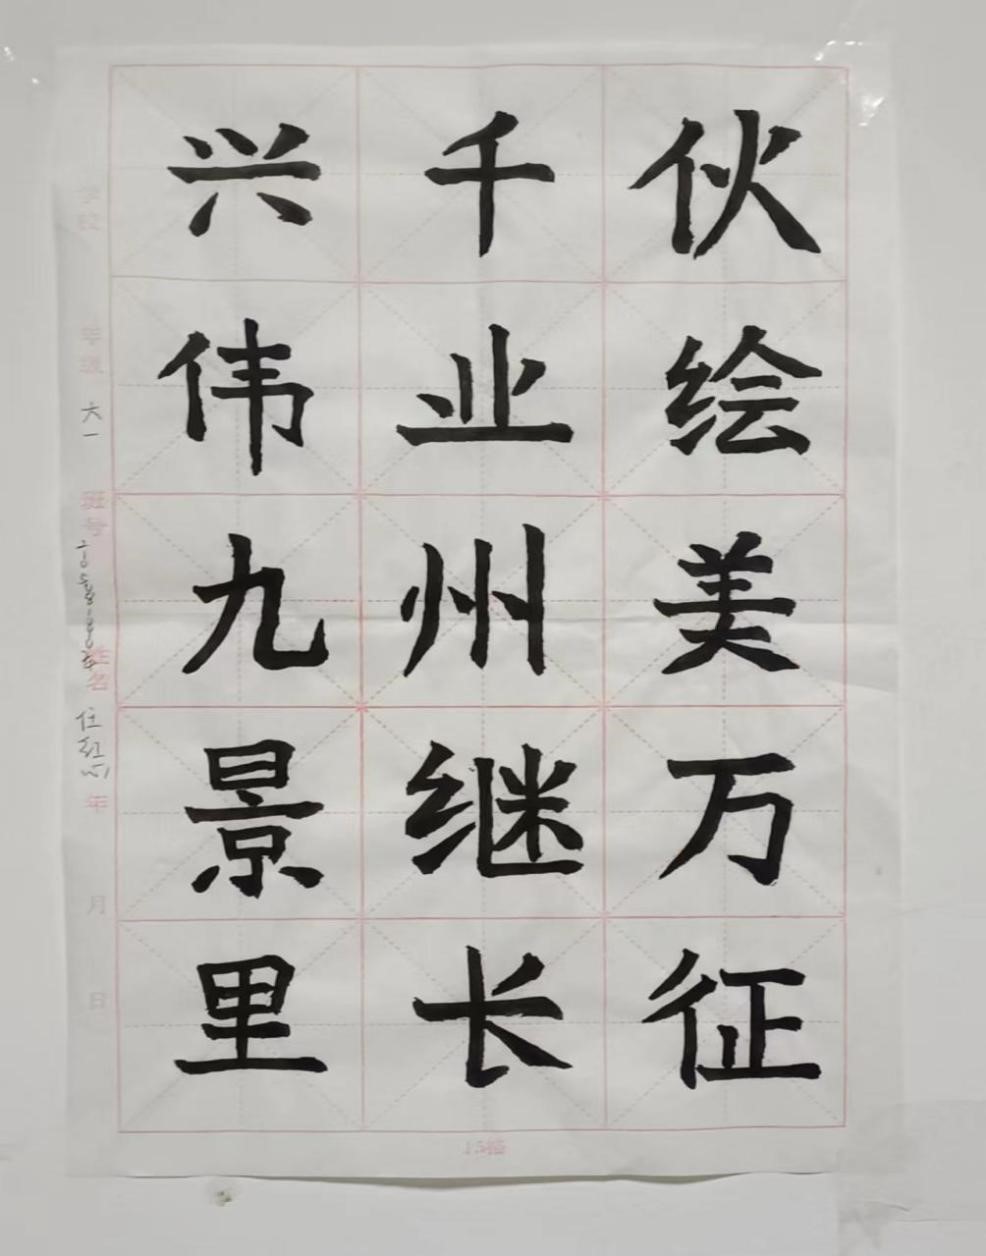 兴千伙
伟业绘
九州美
景继万
里长征
学校
年级 六一
班号
姓名
年 月 日
15格